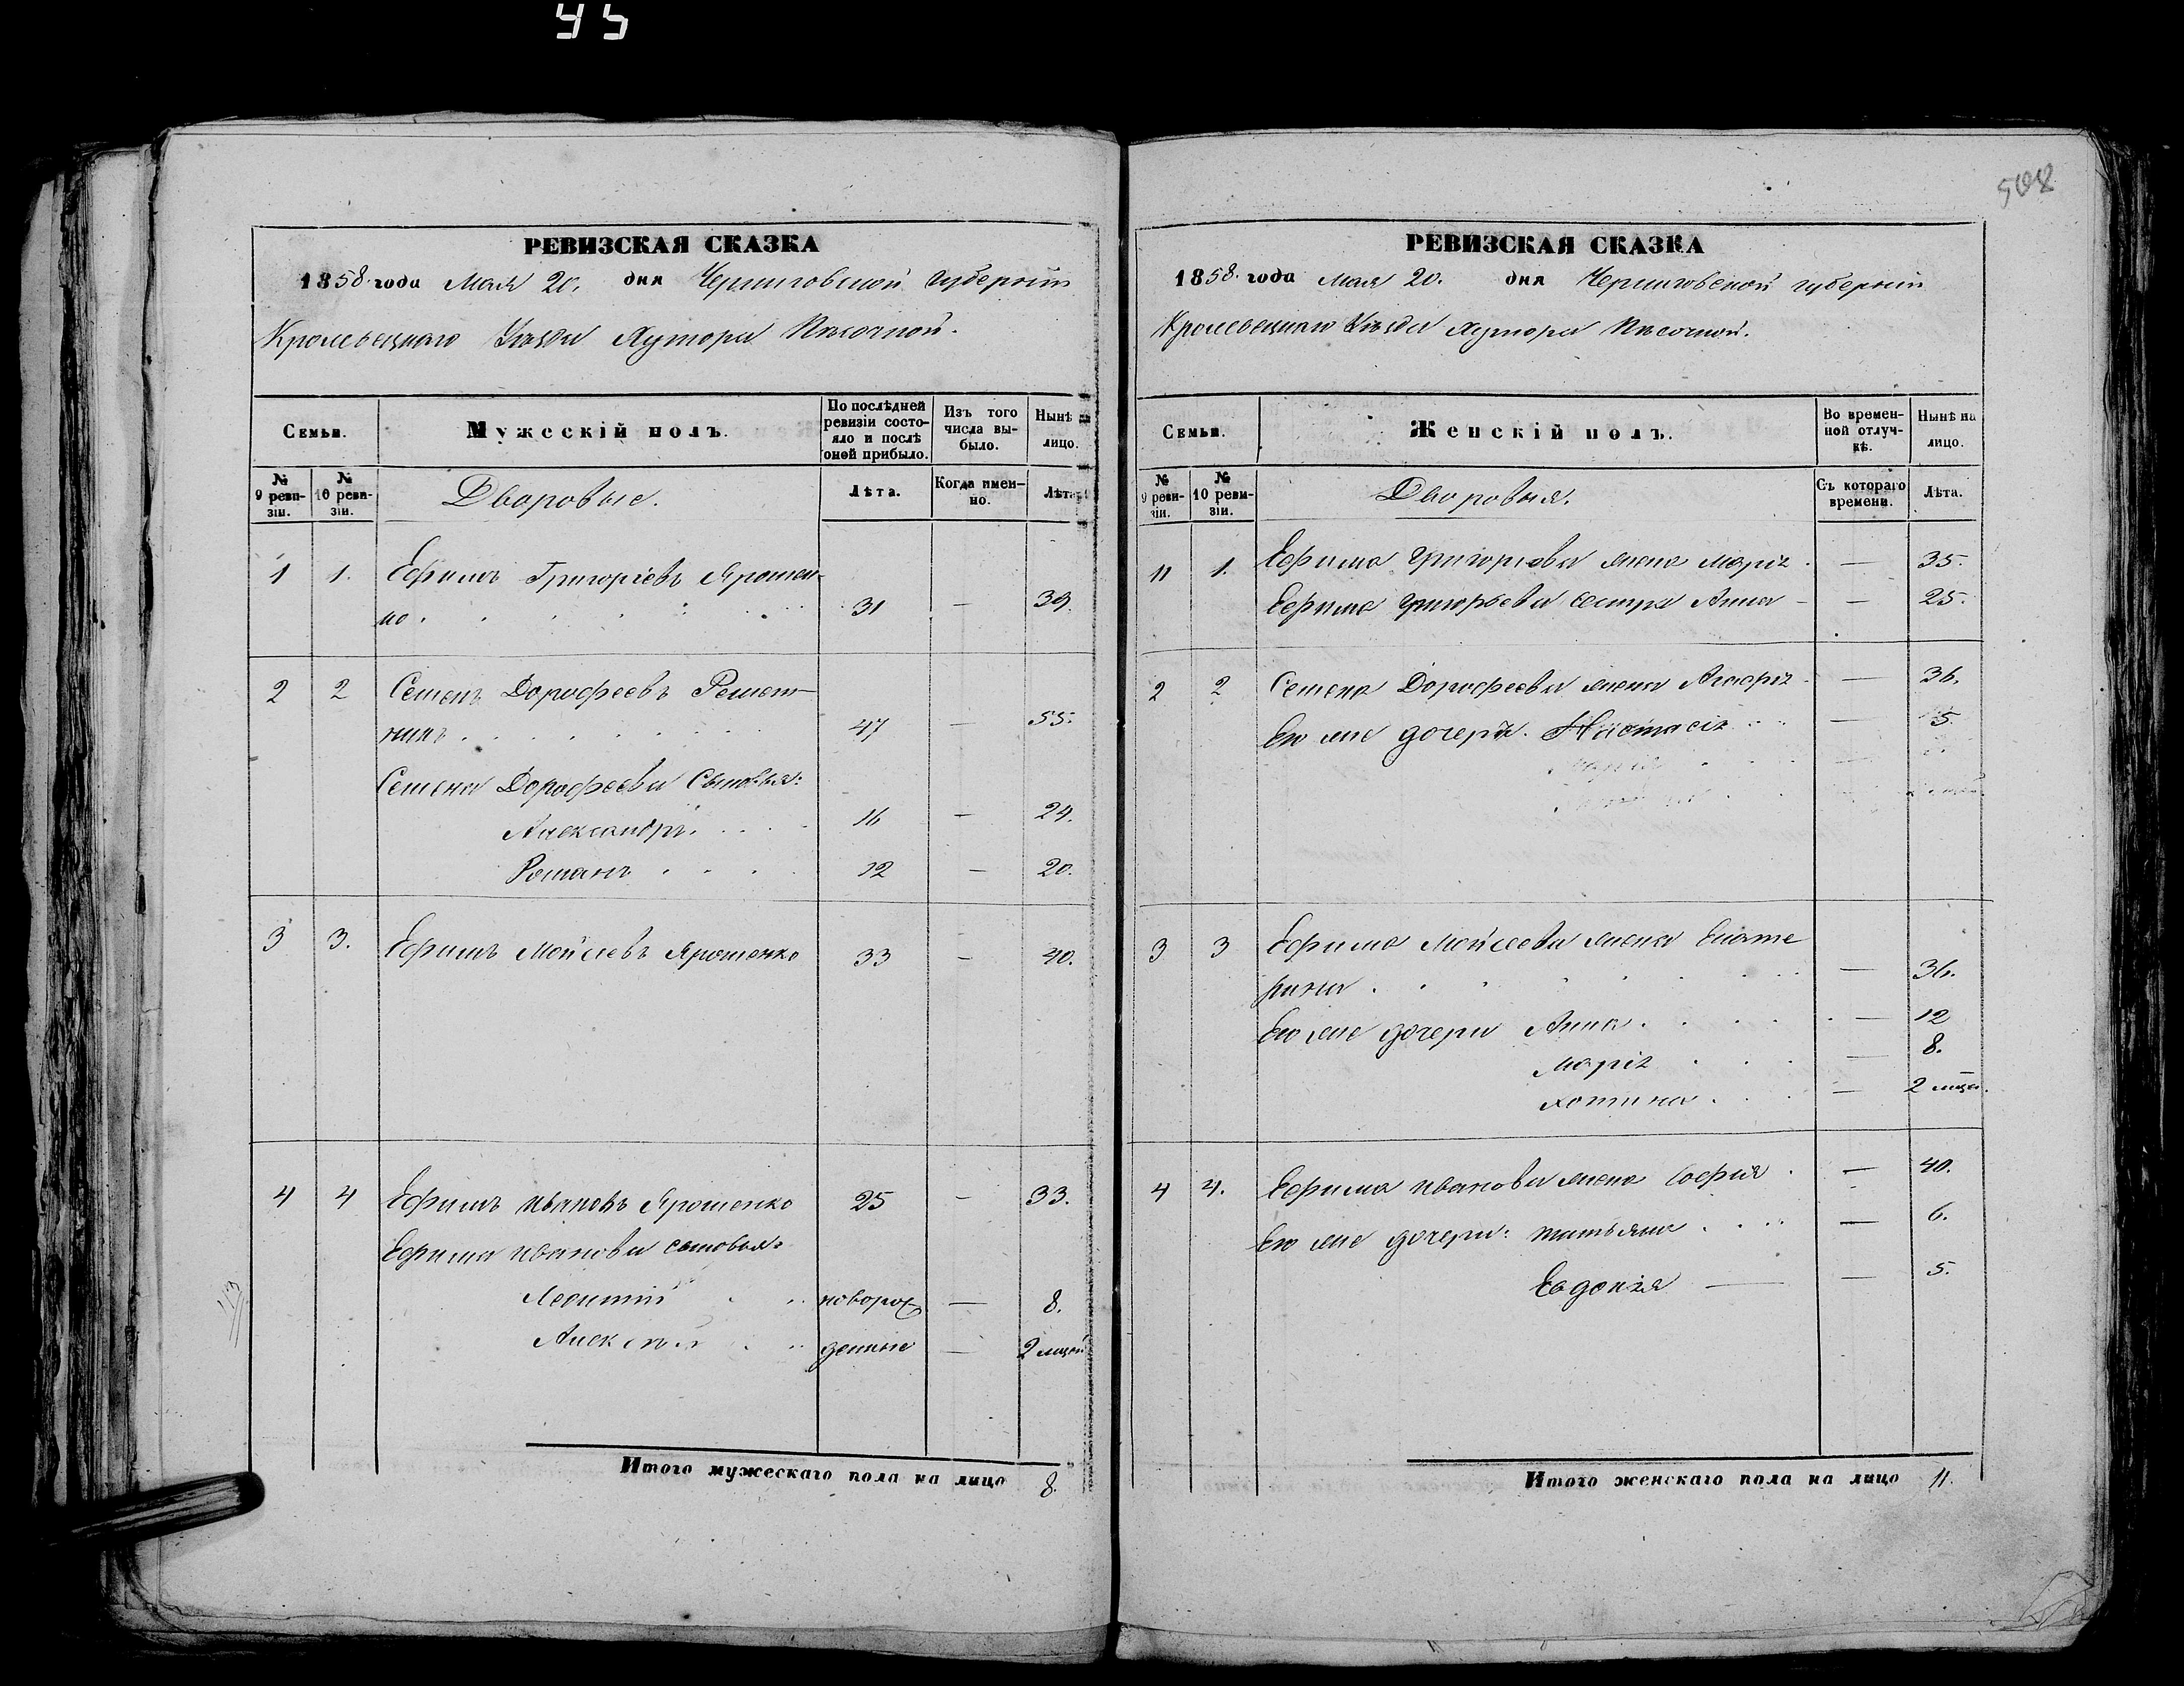 45
508
РЕВИЗСКАЯ СКАЗКА
1858. года Мая 20. дня Черниговской Губернии
Кролевецкаго Уѣзда Хутора Пѣсочной.
Семьи.
Мужескій полъ.
По послѣдней ревизіи состояло и послѣ оной прибыло.
Изъ того числа выбыло.
Нынѣ на лицо.
№ 9 ревизіи.
№ 10 ревизіи.
Дворовые.
Лѣта.
Когда именно.
Лѣта.
1 1. Ефимъ Григоріевъ Ярошен-
ко . 31 — 39.
2 2 Семенъ Дорофеевъ Решет-
никъ . 47 — 55.
Семена Дорофеева Сыновья:
Александръ. 16 — 24.
Романъ 12 — 20.
3 3. Ефимъ Мойсеевъ Ярошенко 33 — 40.
4 4 Ефимъ Ивановъ Ярошенко 25 — 33.
Ефима Иванова сыновья:
Леонтий новорож — 8.
Алексѣй денные — 2 мцей
Итого мужескаго пола на лицо 8.
РЕВИЗСКАЯ СКАЗКА
1858. года Мая 20. дня Черниговской губерніи
Кролевецкаго Уѣзда Хутора Пѣсочной.
Семьи.
Женскій полъ.
Во временной отлучкѣ.
Нынѣ на лицо.
№ 9 ревизіи.
№ 10 ревизіи.
Дворовыя.
Съ котораго времени.
Лѣта.
11 1. Ефима Григорьева жена Марія . — 35.
Ефима Григорьева сестра Анна — — 25.
2 2 Семена Дорофеева жена Агафія — 36.
Его же дочери. Настасія — 5
3 3 Ефима Мойсеева жена Екате
рина . — 36.
Его же дочери Анна . — 12
Марія — 8.
— 2 мцев.
4 4. Ефима Иванова жена Софія . — 40.
Его же дочери: Татьяна — 6.
Евдокія — — 5.
Итого женскаго пола на лицо 11.